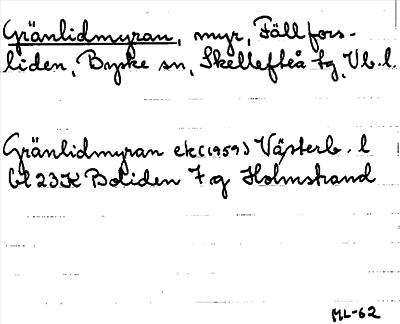 Gränlidmyran, myr, Fällfors-
liden, Byske sn, Skellefteå tg, Vb. l.
Gränlidmyran ek (1959) Västerb. l
bl 23K Boliden 7 g Holmstrand
ML-62